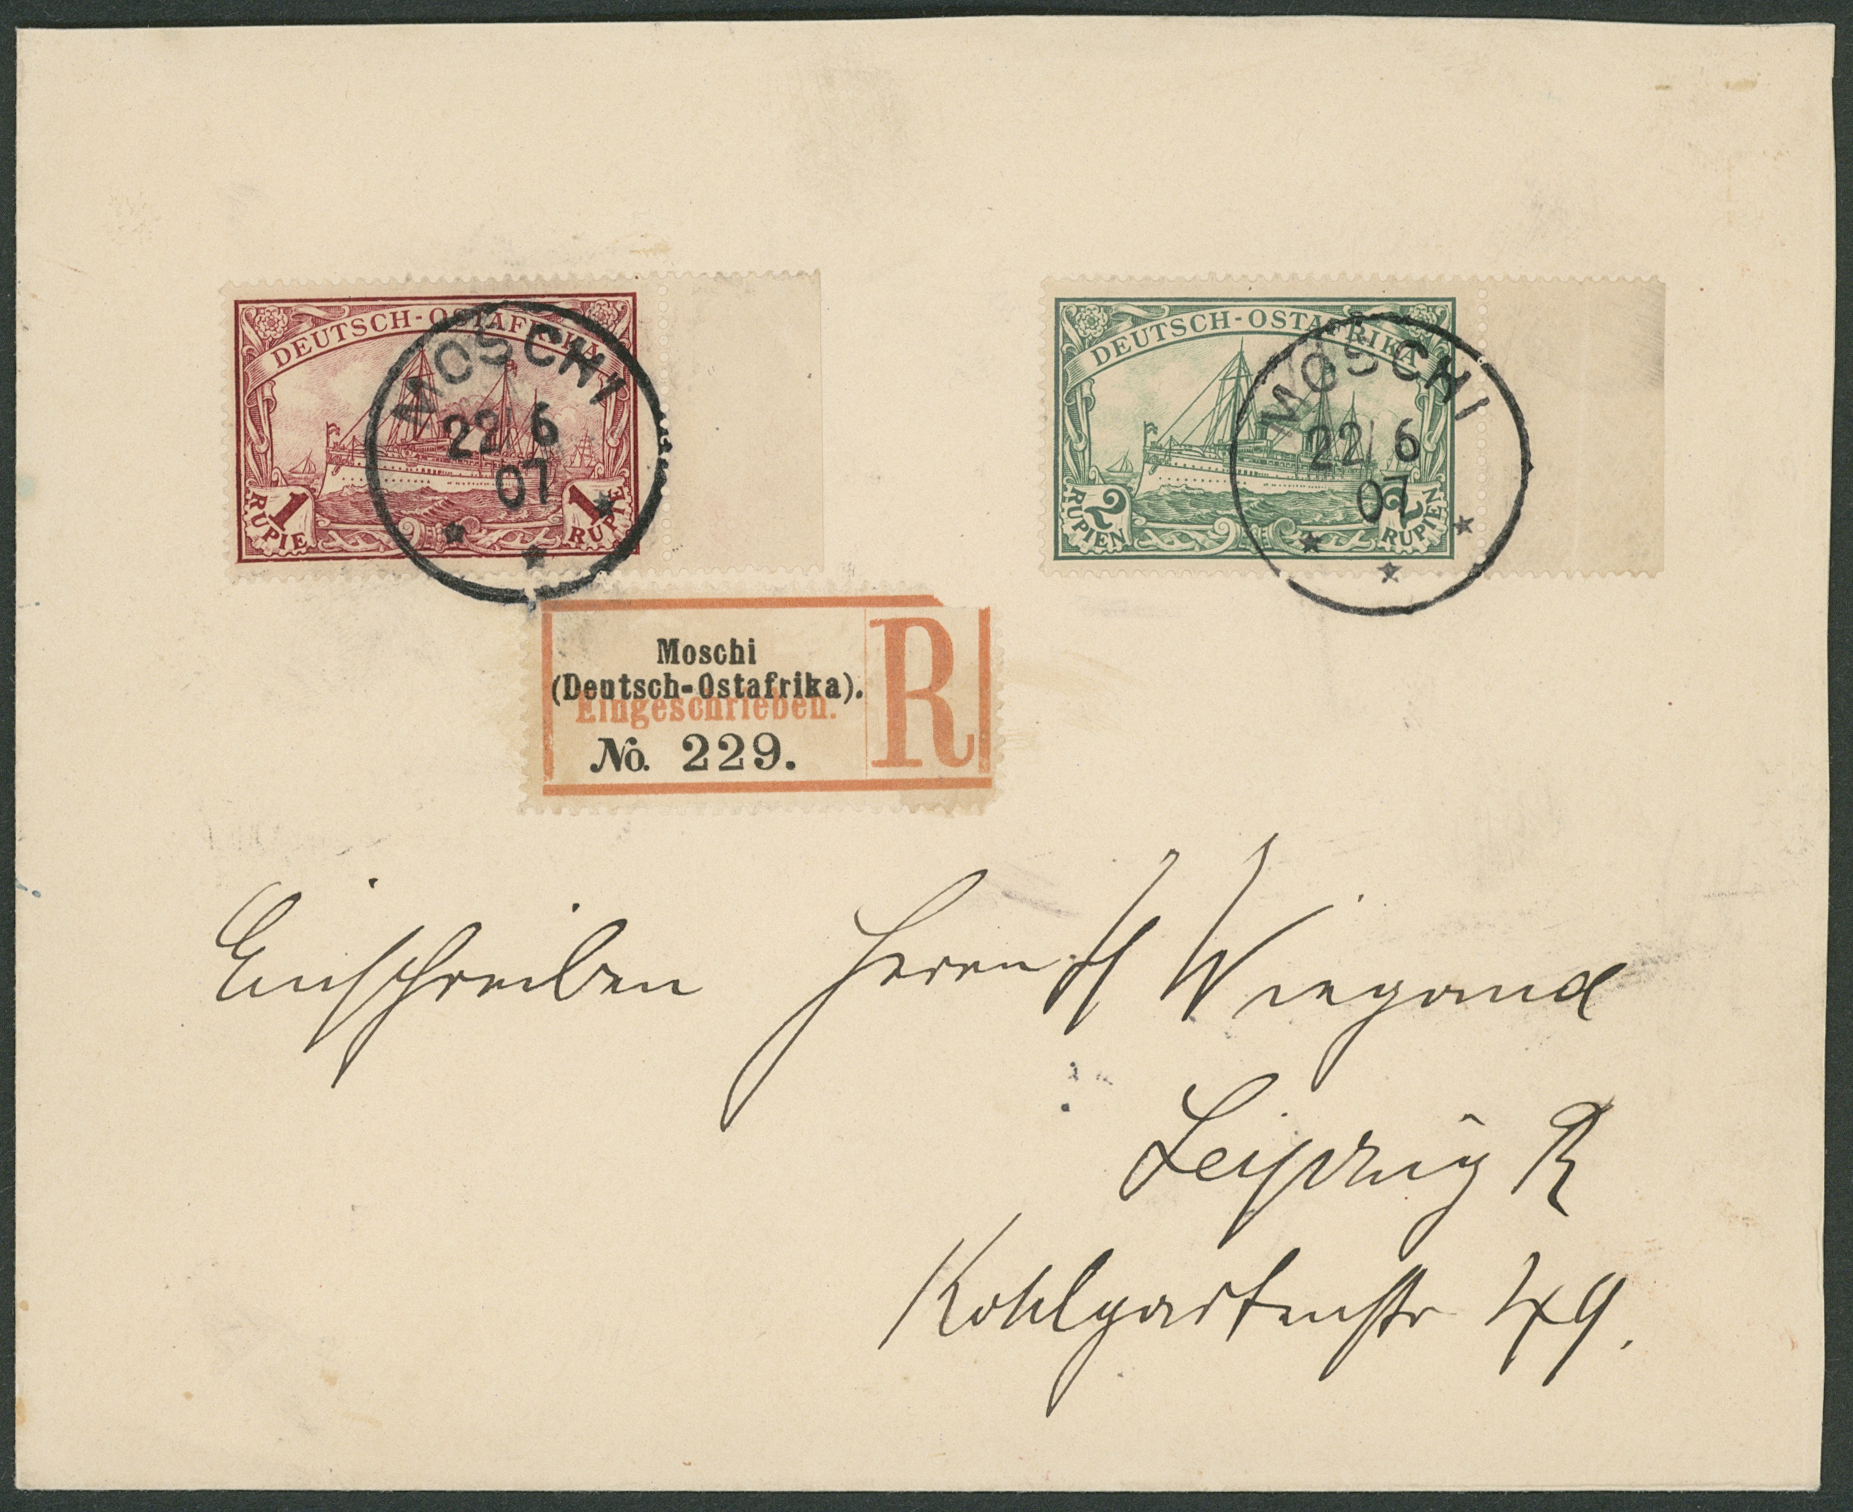 DEUTSCH-OSTAFRIKA
1 RUPIE 1 RUPIE
MOSCHI
22/6
07
DEUTSCH-OSTAFRIKA
2 RUPIEN 2 RUPIEN
MOSCHI
22/6
07
Moschi
(Deutsch-Ostafrika).
Eingeschrieben.
No. 229.
R
Einschreiben Herrn H Wiegand
Leipzig R
Kohlgartenstr 49.